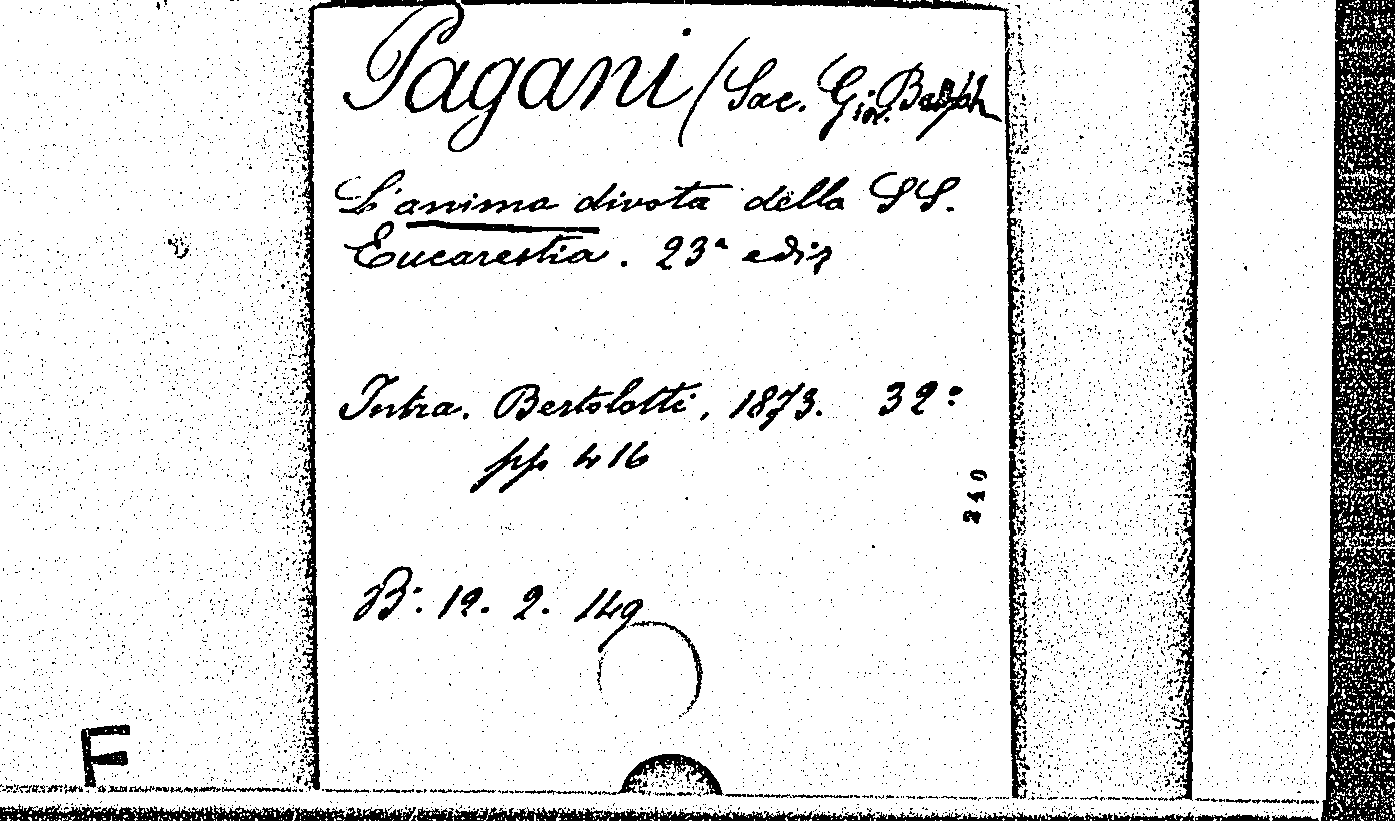 Pagani (Sac. Gio. Batt.
L'anima divota della SS.
Eucarestia. 23ª ediz
Intra. Bertolotti, 1873. 32º
pp 416
240
B: 12. 2. 149
F